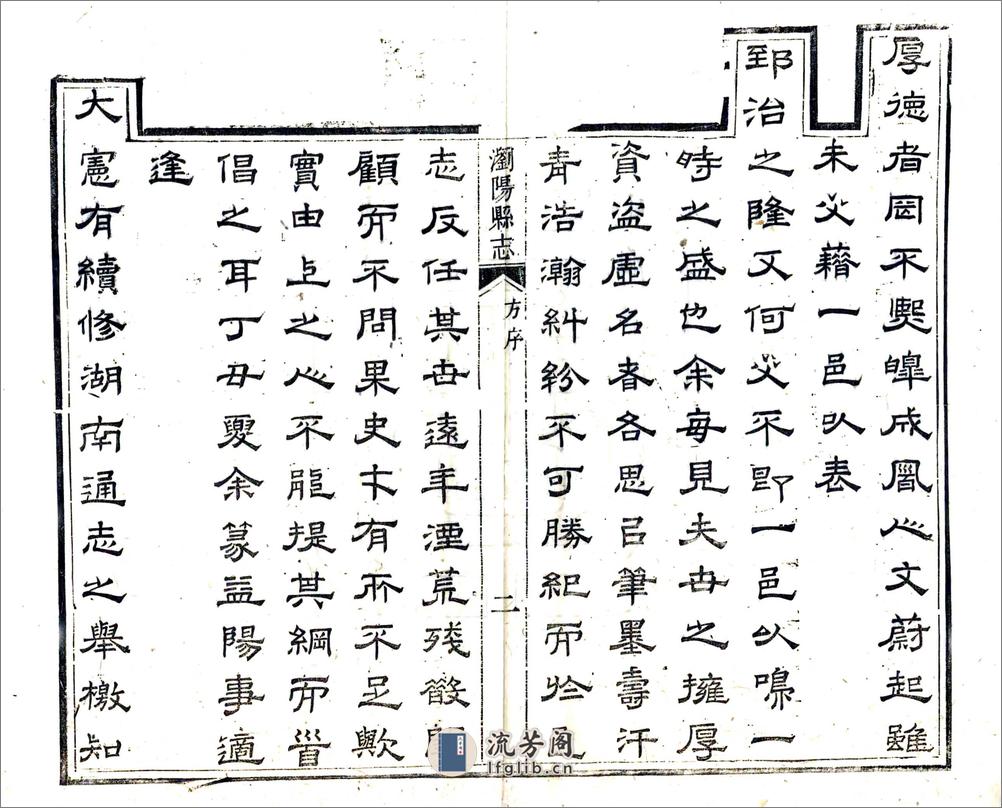 厚德者罔不熙皞成風人文蔚起雖
未必藉一邑以表
郅治之隆又何必不即一邑以鳴一
時之盛也余每見夫世之擁厚
資盜虛名者各思以筆墨壽汗
青浩瀚糾紛不可勝紀而於
瀏陽縣志
方序
二
志反任其世遠年湮荒殘
顧而不問果史才有所不足歟
實由上之人不能提其綱而首
倡之耳丁丑夏余篆益陽事適
逢
大憲有續修湖南通志之舉檄知
流芳阁
lfglib.cn